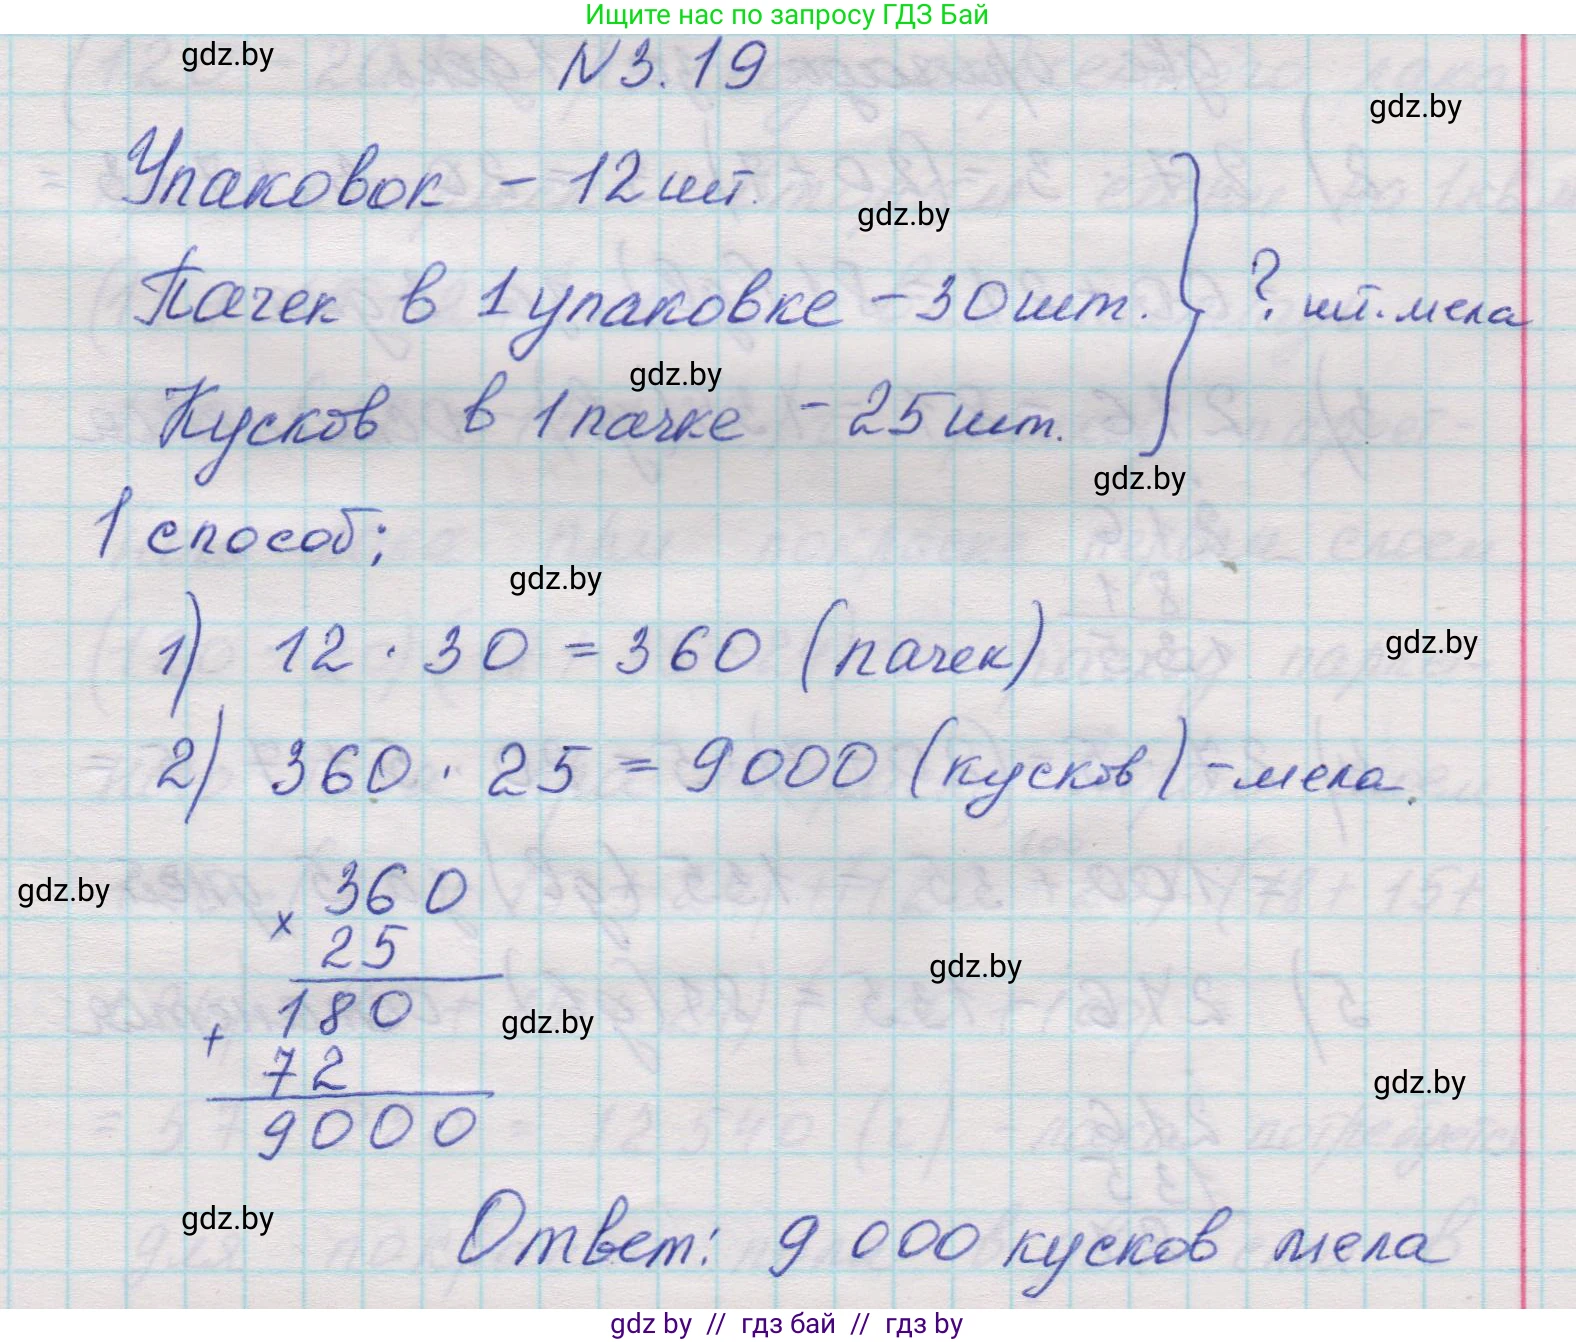 Ищите нас по запросу ГДЗ Бай
gdz.by
N3.19
gdz.by
Упаковок - 12 шт.
gdz.by
Пачек в 1 упаковке - 30 шт.
? шт. мела
gdz.by
Кусков в 1 пачке - 25 шт.
gdz.by
1 способ;
gdz.by
1) 12 · 30 = 360 (пачек)
gdz.by
2) 360 · 25 = 9000 (кусков) - мела.
360
gdz.by
×
25
gdz.by
180
gdz.by
+
72
gdz.by
9000
gdz.by
Ответ: 9 000 кусков мела
gdz by // гдз бай // гдз by